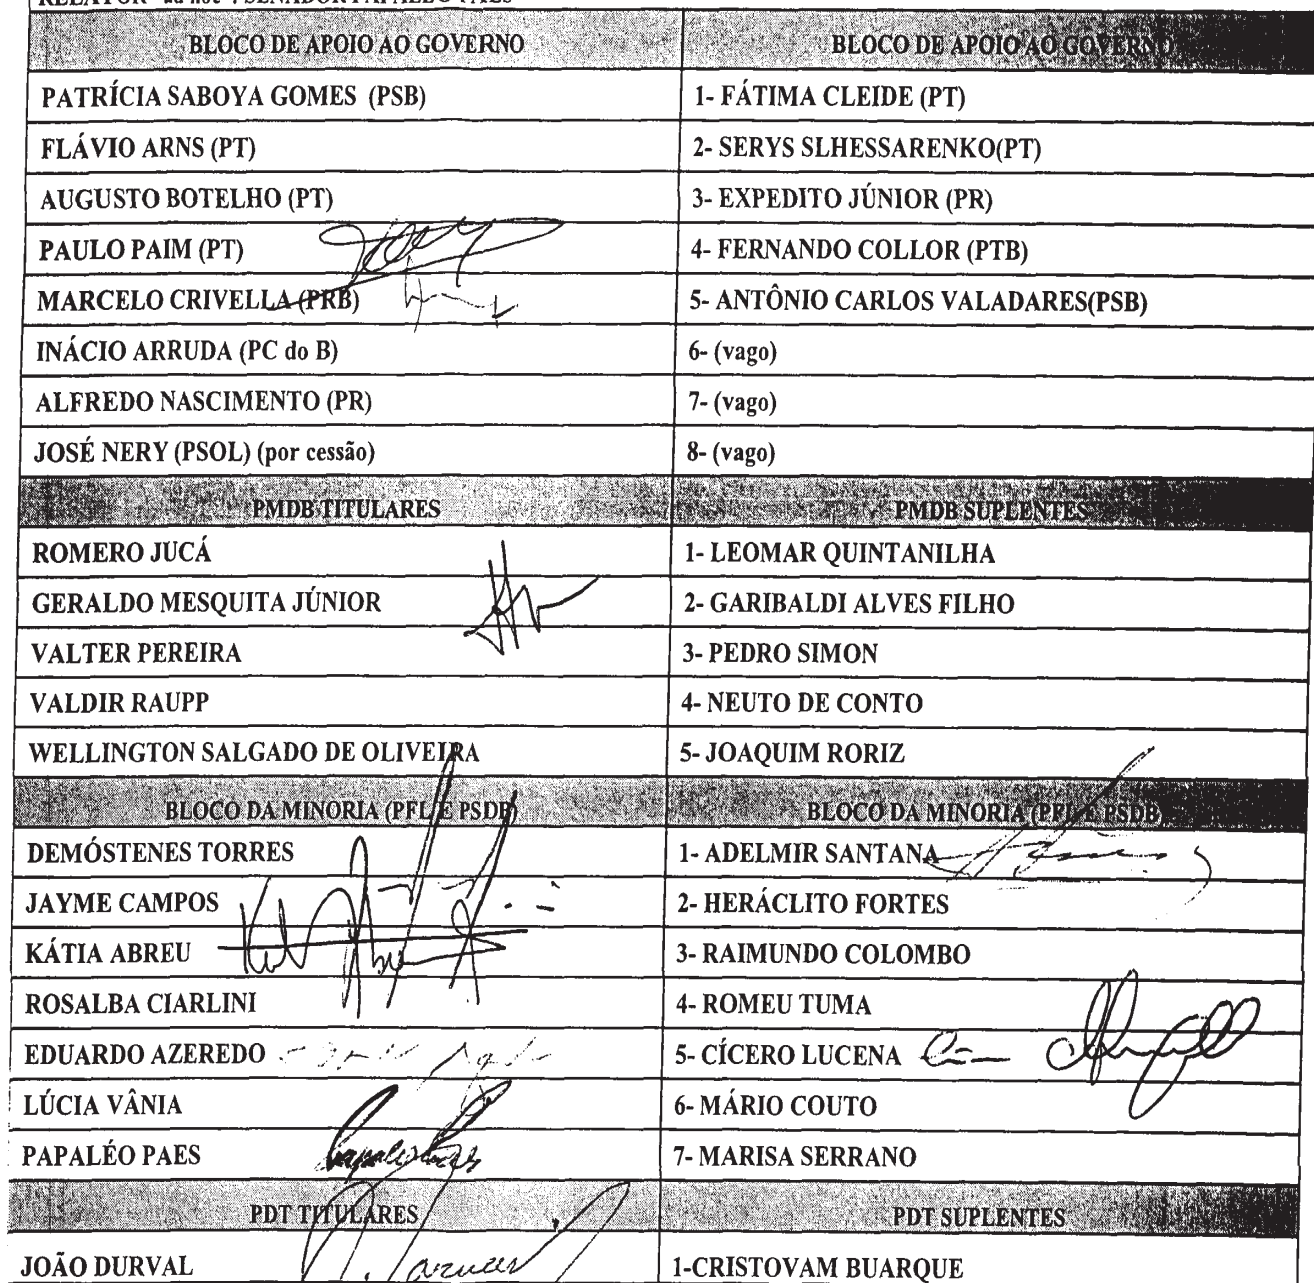 RELATOR "ad hoc": SENADOR PAPALÉO PAES
BLOCO DE APOIO AO GOVERNO BLOCO DE APOIO AO GOVERNO
PATRÍCIA SABOYA GOMES (PSB) 1- FÁTIMA CLEIDE (PT)
FLÁVIO ARNS (PT) 2- SERYS SLHESSARENKO(PT)
AUGUSTO BOTELHO (PT) 3- EXPEDITO JÚNIOR (PR)
PAULO PAIM (PT) 4- FERNANDO COLLOR (PTB)
MARCELO CRIVELLA (PRB) 5- ANTÔNIO CARLOS VALADARES(PSB)
INÁCIO ARRUDA (PC do B) 6- (vago)
ALFREDO NASCIMENTO (PR) 7- (vago)
JOSÉ NERY (PSOL) (por cessão) 8- (vago)
PMDB TITULARES PMDB SUPLENTES
ROMERO JUCÁ 1- LEOMAR QUINTANILHA
GERALDO MESQUITA JÚNIOR 2- GARIBALDI ALVES FILHO
VALTER PEREIRA 3- PEDRO SIMON
VALDIR RAUPP 4- NEUTO DE CONTO
WELLINGTON SALGADO DE OLIVEIRA 5- JOAQUIM RORIZ
BLOCO DA MINORIA (PFL E PSDB) BLOCO DA MINORIA (PFL E PSDB)
DEMÓSTENES TORRES 1- ADELMIR SANTANA
JAYME CAMPOS 2- HERÁCLITO FORTES
KÁTIA ABREU 3- RAIMUNDO COLOMBO
ROSALBA CIARLINI 4- ROMEU TUMA
EDUARDO AZEREDO 5- CÍCERO LUCENA
LÚCIA VÂNIA 6- MÁRIO COUTO
PAPALÉO PAES 7- MARISA SERRANO
PDT TITULARES PDT SUPLENTES
JOÃO DURVAL 1-CRISTOVAM BUARQUE